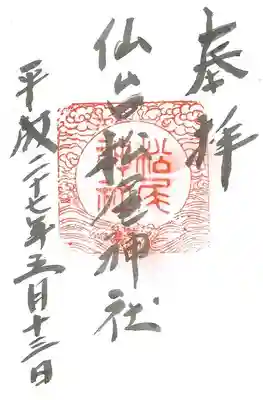 奉拝
仙台松尾神社
平成二十七年五月十三日
松尾神社